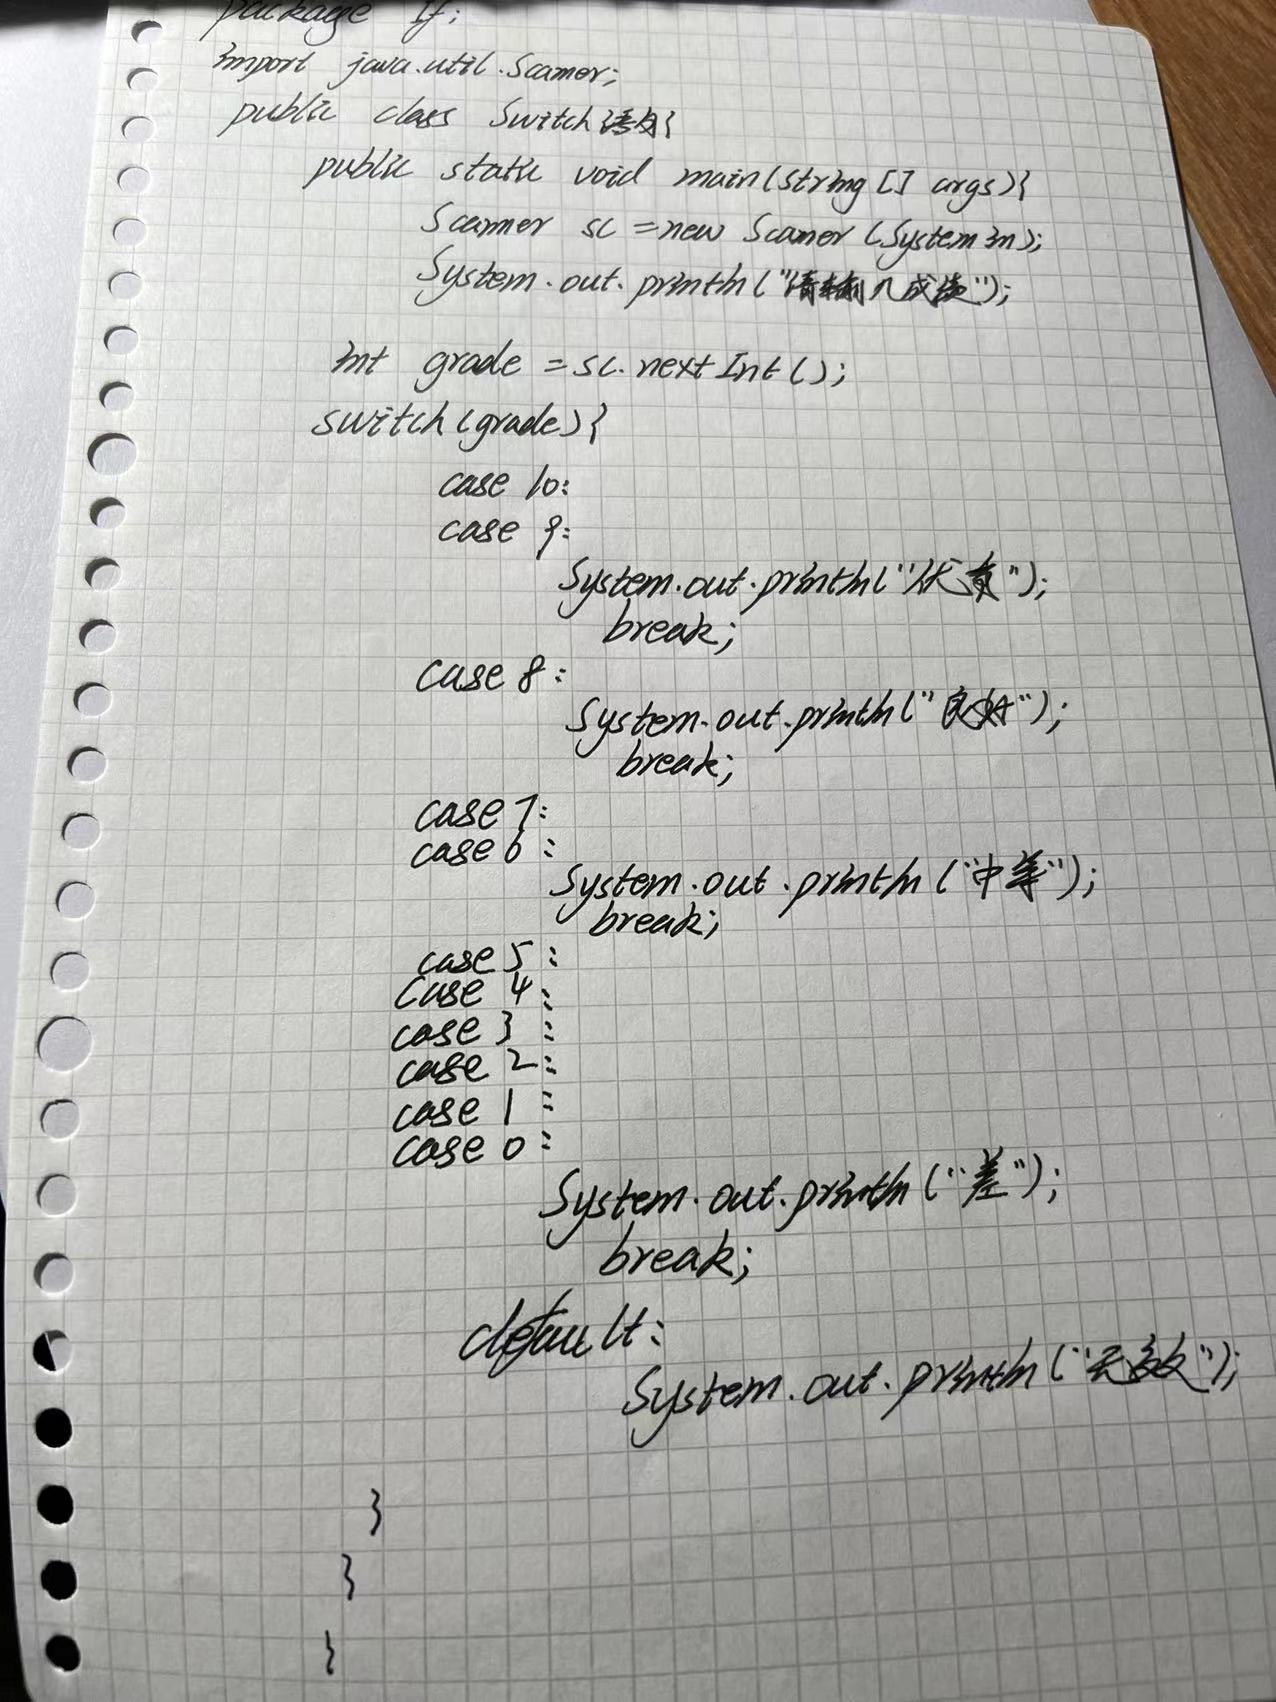 package If;
import java.util.Scanner;
public class Switch语句{
public static void main(String [] args){
Scanner sc =new Scanner (System in);
System.out.println("请输入成绩");
int grade =sc.nextInt();
switch(grade){
case 10:
case 9:
System.out.println("优良");
break;
case 8:
System.out.println("良好");
break;
case 7:
case 6:
System.out.println("中等");
break;
case 5:
case 4:
case 3:
case 2:
case 1:
case 0:
System.out.println("差");
break;
default:
System.out.println("无效");
}
}
}